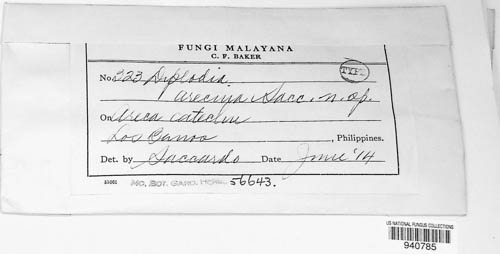 FUNGI MALAYANA
C. F. BAKER
No. 223 Diplodia
arecina Sacc. n. sp.
TYPE
On Areca catechu
Los Banos, Philippines.
Det. by Saccardo Date June '14
MO. BOT. GARD. HERB. 56643.
US NATIONAL FUNGUS COLLECTIONS
940785